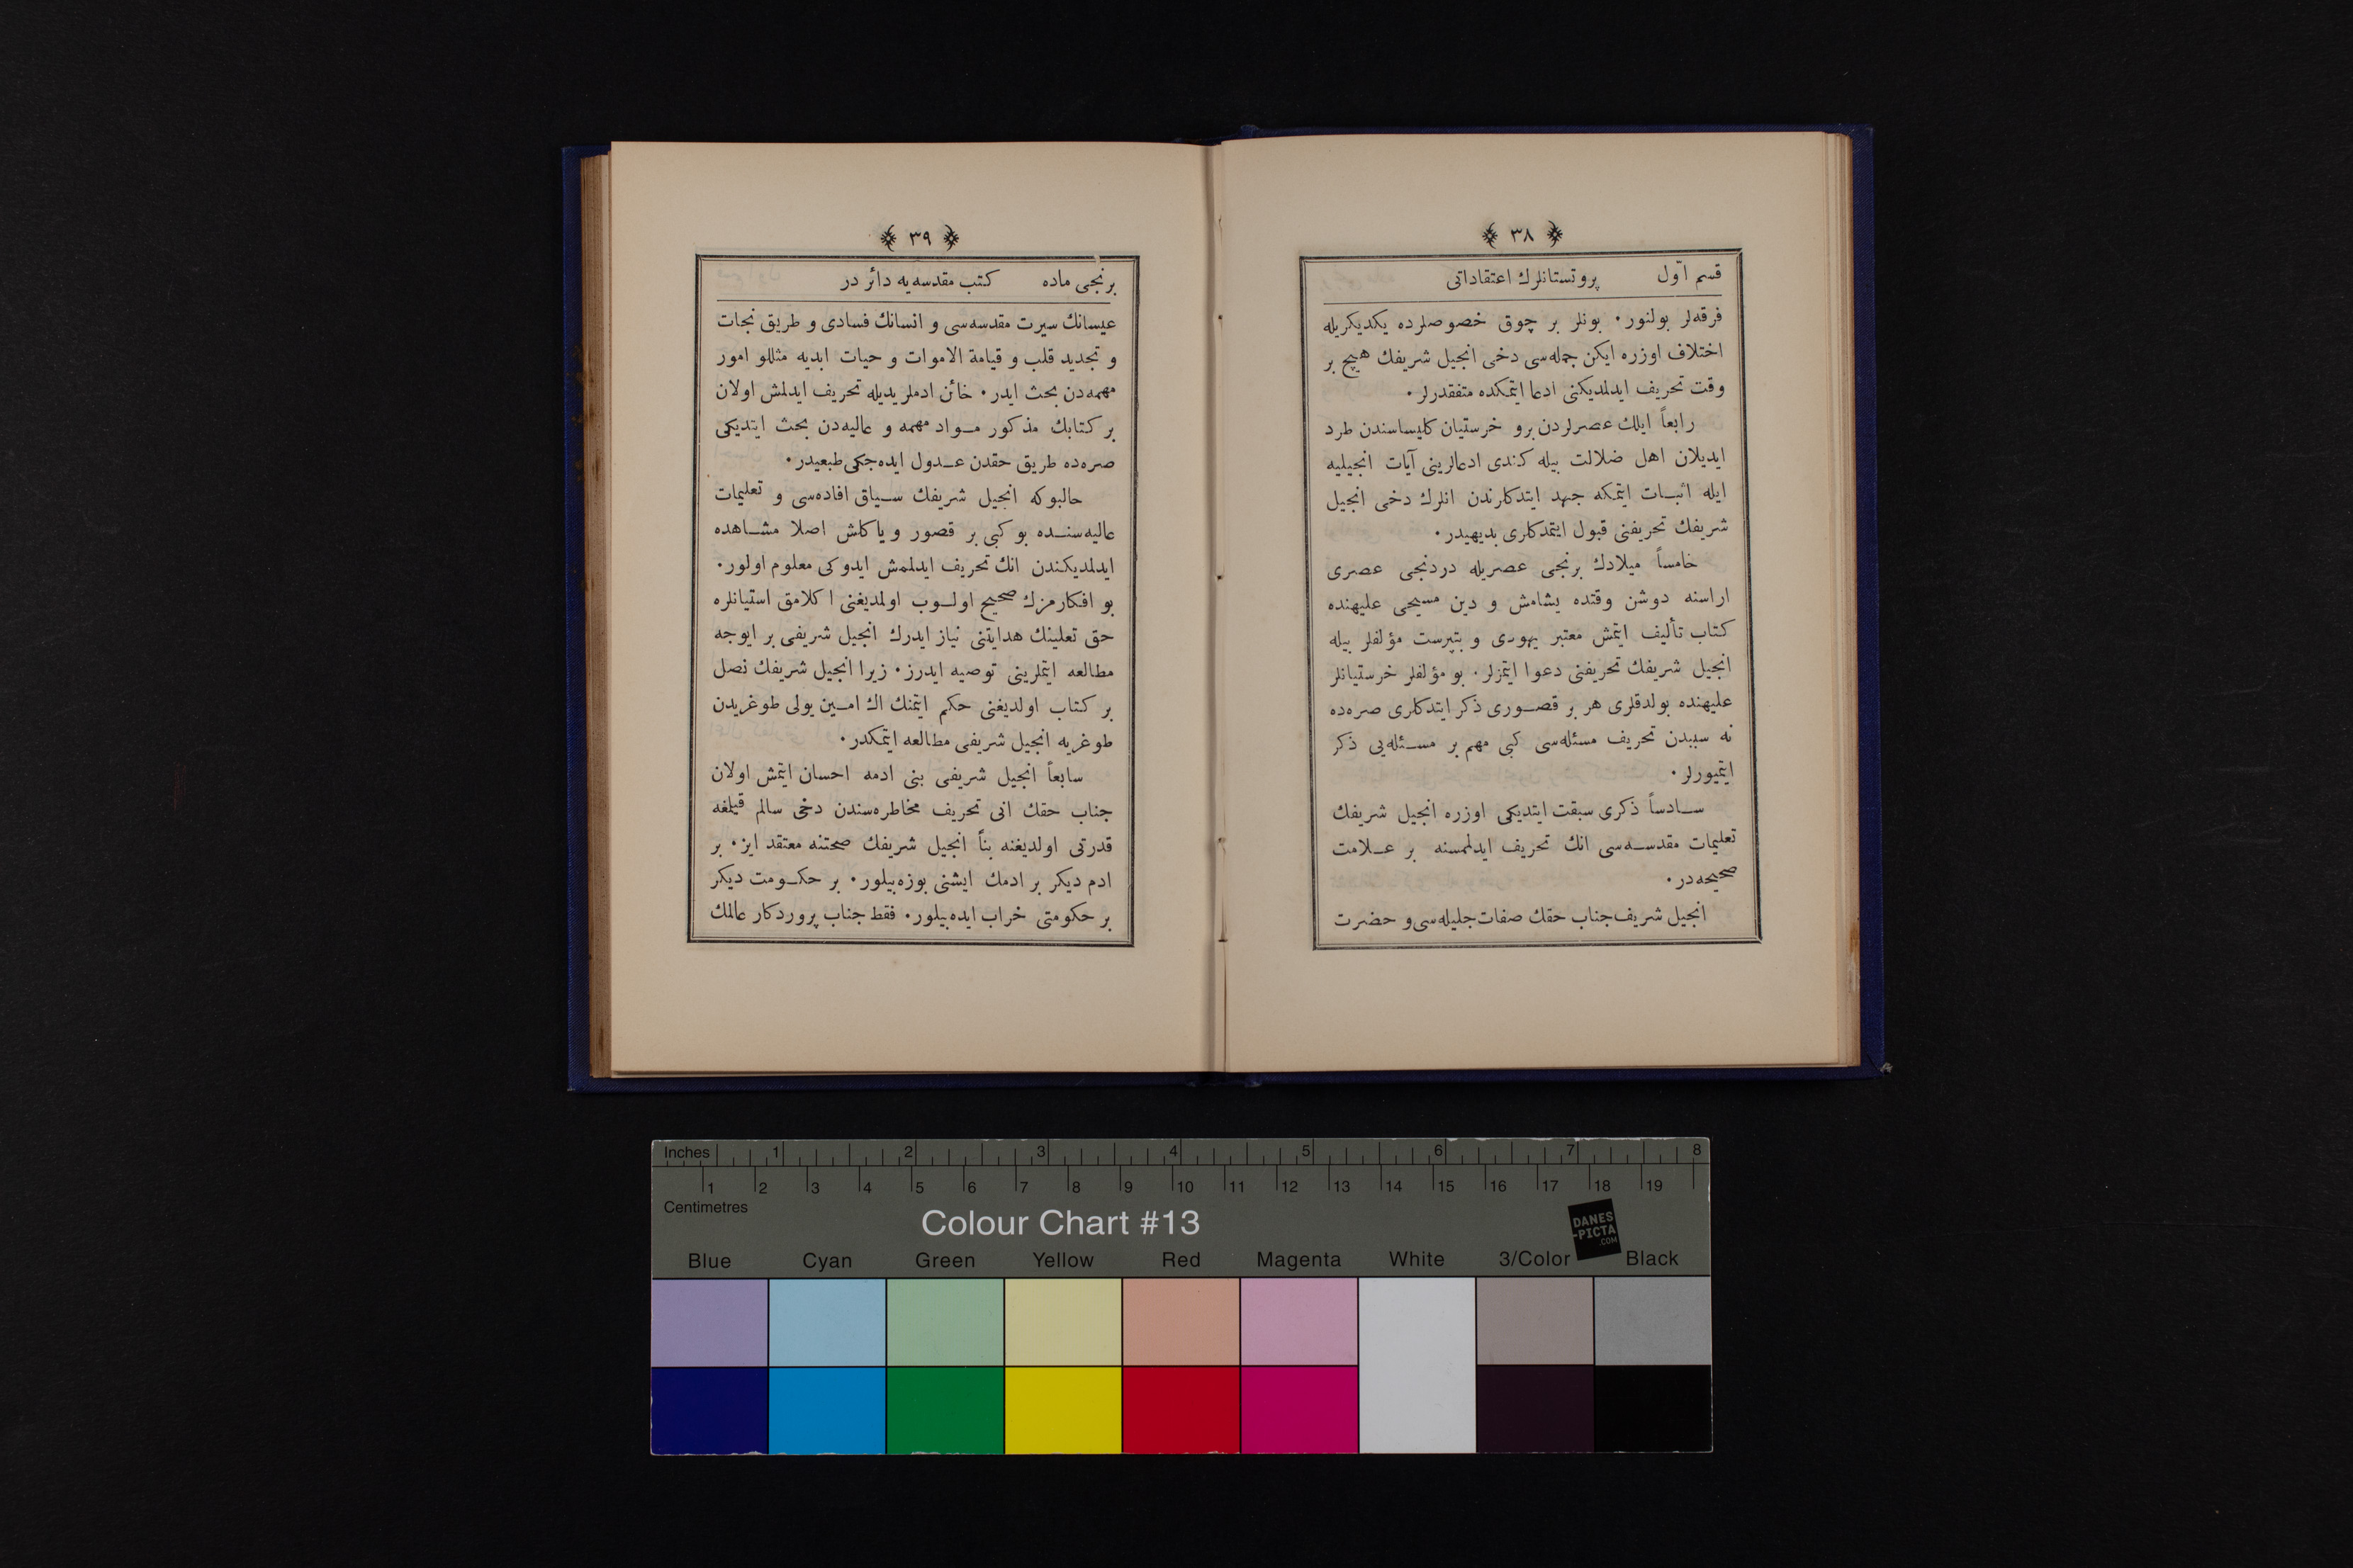 ﴿ ٣٨ ﴾
قسم اوّل پروتستانلرك اعتقاداتی
فرقه‌لر بولنور. بونلر بر چوق خصوصلرده یكدیكریله
اختلاف اوزره ایكن جمله‌سی دخی انجیل شریفك هیچ بر
وقت تحریف ایدلمدیكنی ادعا ایتمكده متفقدرلر.
رابعاً ایلك عصرلردن برو خرستیان كلیساسندن طرد
ایدیلان اهل ضلالت بیله كندی ادعالرینی آیات انجیلیه
ایله اثبات ایتمكه جهد ایتدكلرندن انلرك دخی انجیل
شریفك تحریفنی قبول ایتمدكلری بدیهیدر.
خامساً میلادك برنجی عصریله دردنجی عصری
اراسنه دوشن وقتده یشامش و دین مسیحی علیهنده
كتاب تألیف ایتمش معتبر یهودی و بتپرست مؤلفلر بیله
انجیل شریفك تحریفنی دعوا ایتمزلر. بو مؤلفلر خرستیانلر
علیهنده بولدقلری هر بر قصوری ذكر ایتدكلری صره‌ده
نه سببدن تحریف مسئله‌سی كبی مهم بر مسئله‌یی ذكر
ایتمیورلر.
سادساً ذكری سبقت ایتدیكی اوزره انجیل شریفك
تعلیمات مقدسه‌سی انك تحریف ایدلممسنه بر علامت
صحیحه‌در.
انجیل شریف جناب حقك صفات جلیله‌سی و حضرت
﴿ ٣٩ ﴾
برنجی ماده كتب مقدسه‌یه دائر در
عیسانك سیرت مقدسه‌سی و انسانك فسادی و طریق نجات
و تجدید قلب و قیامة الاموات و حیات ابدیه مثللو امور
مهمه‌دن بحث ایدر. خائن ادملر یدیله تحریف ایدلمش اولان
بر كتابك مذكور مواد مهمه و عالیه‌دن بحث ایتدیكی
صره‌ده طریق حقدن عدول ایده‌جكی طبعیدر.
حالبوكه انجیل شریفك سیاق افاده‌سی و تعلیمات
عالیه‌سنده بو كبی بر قصور و یاكلش اصلا مشاهده
ایدلمدیكندن انك تحریف ایدلممش ایدوكی معلوم اولور.
بو افكارمزك صحیح اولوب اولمدیغنی اكلامق استیانلره
حق تعلینك هدایتنی نیاز ایدرك انجیل شریفی بر ایوجه
مطالعه ایتملرینی توصیه ایدرز. زیرا انجیل شریفك نصل
بر كتاب اولدیغنی حكم ایتمنك اك امین یولی طوغریدن
طوغریه انجیل شریفی مطالعه ایتمكدر.
سابعاً انجیل شریفی بنی ادمه احسان ایتمش اولان
جناب حقك انی تحریف مخاطره‌سندن دخی سالم قیلمغه
قدرتی اولدیغنه بناً انجیل شریفك صحتنه معتقد ایز. بر
ادم دیكر بر ادمك ایشنی بوزه‌بیلور. بر حكومت دیكر
بر حكومتی خراب ایده‌بیلور. فقط جناب پروردكار عالمك
Inches 1 2 3 4 5 6 7 8
1 2 3 4 5 6 7 8 9 10 11 12 13 14 15 16 17 18 19
Centimetres
Colour Chart #13
DANES
-PICTA
.COM
Blue Cyan Green Yellow Red Magenta White 3/Color Black